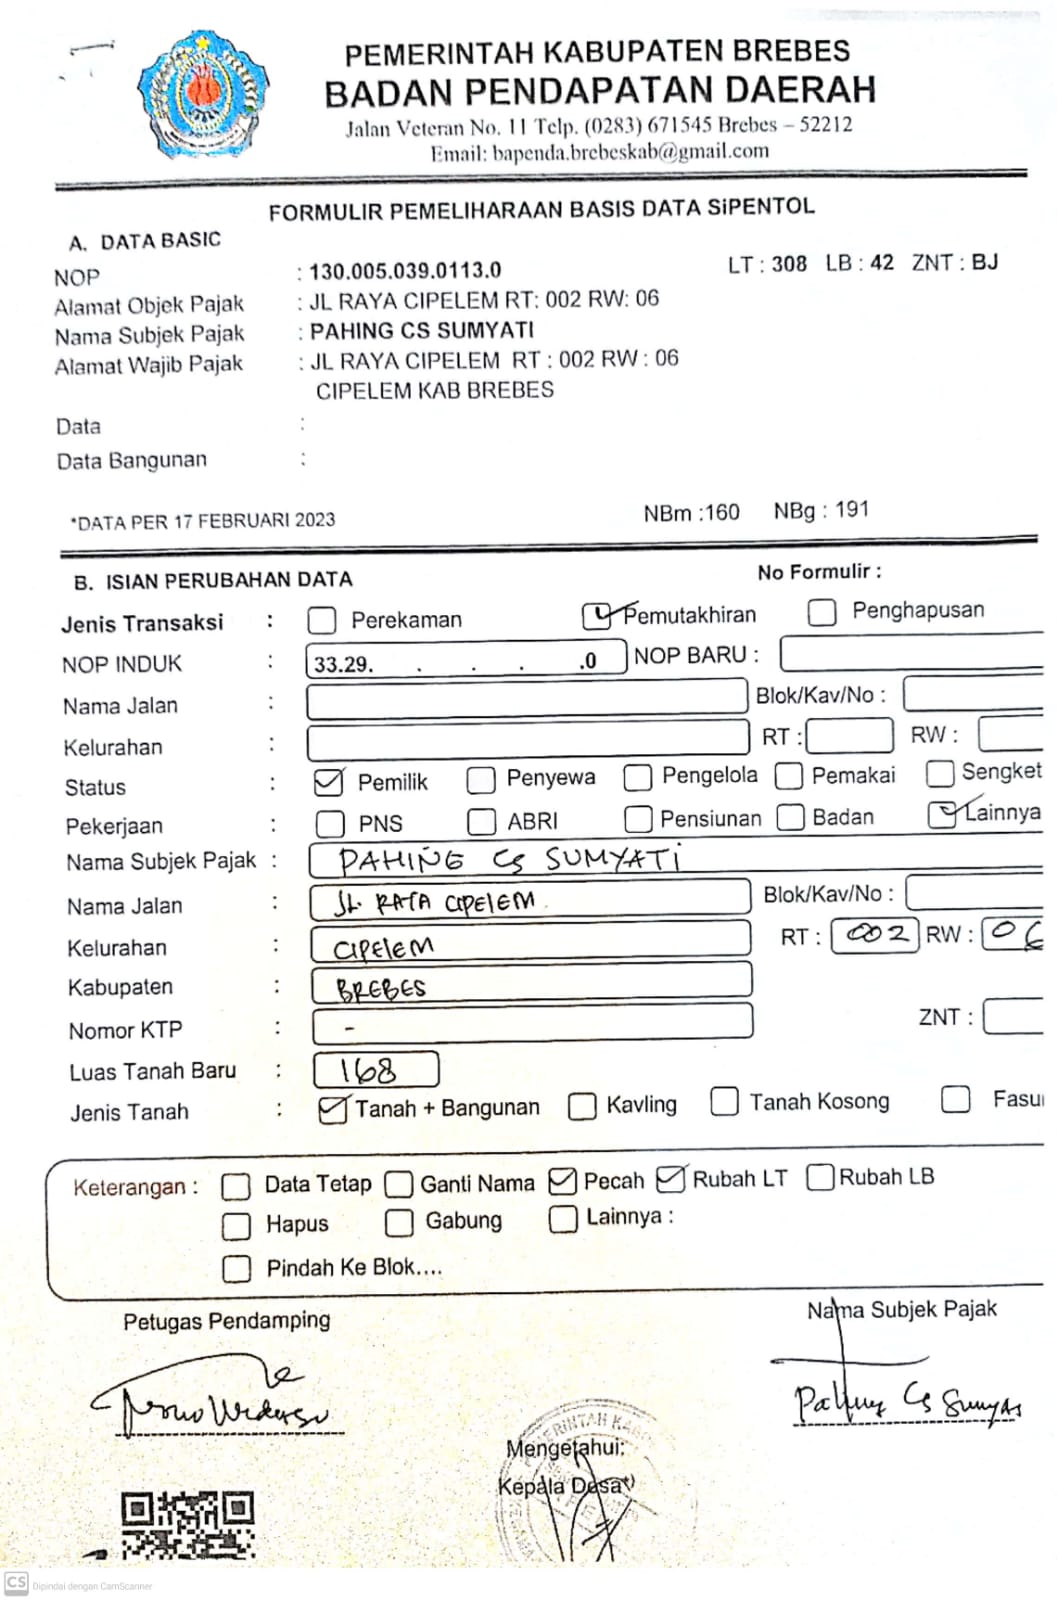 PEMERINTAH KABUPATEN BREBES
BADAN PENDAPATAN DAERAH
Jalan Veteran No. 11 Telp. (0283) 671545 Brebes – 52212
Email: bapenda.brebeskab@gmail.com
FORMULIR PEMELIHARAAN BASIS DATA SiPENTOL
A. DATA BASIC
NOP : 130.005.039.0113.0 LT : 308 LB : 42 ZNT : BJ
Alamat Objek Pajak : JL RAYA CIPELEM RT: 002 RW: 06
Nama Subjek Pajak : PAHING CS SUMYATI
Alamat Wajib Pajak : JL RAYA CIPELEM RT : 002 RW : 06
CIPELEM KAB BREBES
Data :
Data Bangunan :
*DATA PER 17 FEBRUARI 2023 NBm :160 NBg : 191
B. ISIAN PERUBAHAN DATA No Formulir :
Jenis Transaksi : Perekaman Pemutakhiran Penghapusan
NOP INDUK : 33.29. . . . .0 NOP BARU :
Nama Jalan : Blok/Kav/No :
Kelurahan : RT : RW :
Status : Pemilik Penyewa Pengelola Pemakai Sengket
Pekerjaan : PNS ABRI Pensiunan Badan Lainnya
Nama Subjek Pajak : PAHING Cs SUMYATi
Nama Jalan : JL. RAYA CIPELEM Blok/Kav/No :
Kelurahan : CIPELEM RT : 002 RW : 06
Kabupaten : BREBES
Nomor KTP : - ZNT :
Luas Tanah Baru : 168
Jenis Tanah : Tanah + Bangunan Kavling Tanah Kosong Fasu
Keterangan : Data Tetap Ganti Nama Pecah Rubah LT Rubah LB
Hapus Gabung Lainnya :
Pindah Ke Blok....
Petugas Pendamping Nama Subjek Pajak
Pahing Cs Sumyati
Mengetahui:
Kepala Desa
CS Dipindai dengan CamScanner